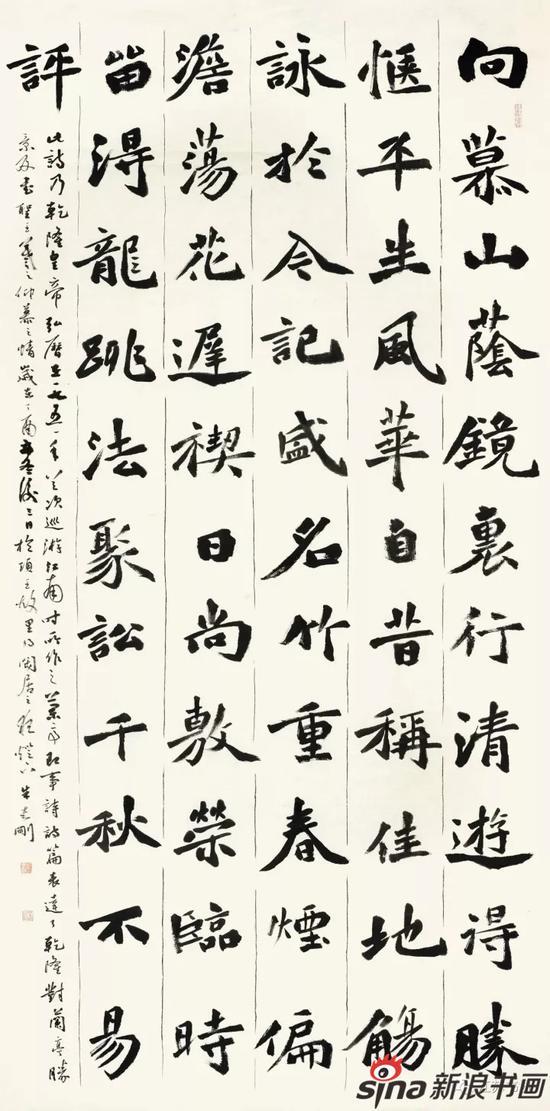 向慕山蔭鏡裏行清遊得勝
愜平生風華自昔稱佳地觴
詠於今記盛名竹重春煙偏
澹蕩花遲禊日尚敷榮臨時
留得龍跳法聚訟千秋不易
評
此詩乃乾隆皇帝弘曆在一七五一年首次巡游江南時所作之蘭亭即事詩詩篇表達了乾隆對蘭亭勝
景及書聖王羲之仰慕之情歲在丁酉
sina新浪书画